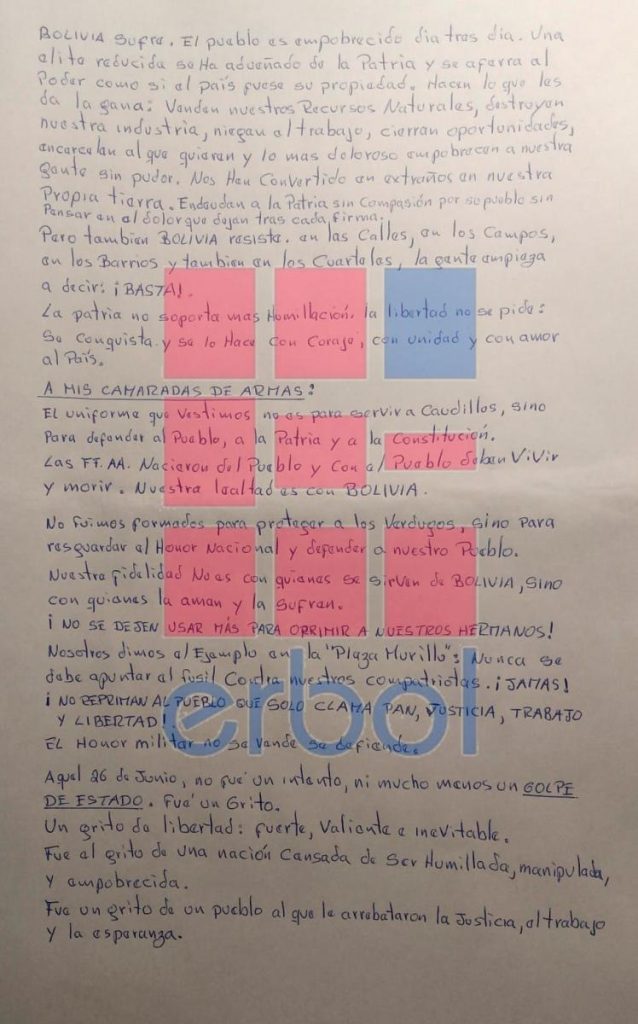 BOLIVIA Sufre. El pueblo es empobrecido dia tras dia. Una
elite reducida se Ha adueñado de la Patria y se aferra al
Poder como si el país fuese su propiedad. Hacen lo que les
da la gana: Venden nuestros Recursos Naturales, destruyen
nuestra industria, niegan el trabajo, cierran oportunidades,
encarcelan al que quieren y lo mas doloroso empobrecen a nuestra
gente sin pudor. Nos Han Convertido en extraños en nuestra
Propia tierra. Endeudan a la Patria sin Compasión por su pueblo sin
Pensar en el dolor que dejan tras cada firma.
Pero tambien BOLIVIA resiste. en las Calles, en los Campos,
en los Barrios y tambien en los Cuarteles, la gente empieza
a decir: ¡BASTA!.
La patria no soporta mas Humillación. la libertad no se pide:
Se conquista y se lo Hace con Coraje, con unidad y con amor
al País.
A MIS CAMARADAS DE ARMAS:
El uniforme que Vestimos no es para servir a Caudillos, sino
Para defender al Pueblo, a la Patria y a la Constitución.
Las FF.AA. Nacieron del Pueblo y Con el Pueblo deben ViVir
y morir. Nuestra lealtad es con BOLIVIA.
No fuimos formados para proteger a los Verdugos, sino Para
resguardar el Honor Nacional y defender a nuestro Pueblo.
Nuestra fidelidad No es con quienes se sirven de BOLIVIA, sino
con quienes la aman y la sufren.
¡ NO SE DEJEN USAR MÁS PARA OPRIMIR A NUESTROS HERMANOS!
Nosotros dimos el Ejemplo en la "Plaza Murillo": Nunca se
debe apuntar el fusil Contra nuestros compatriotas. ¡JAMAS!
¡ NO REPRIMAN AL PUEBLO QUE SOLO CLAMA PAN, JUSTICIA, TRABAJO
Y LIBERTAD!.
EL Honor militar no se Vende se defiende.
erbol
Aquel 26 de Junio, no fue un intento, ni mucho menos un GOLPE
DE ESTADO. Fue un Grito.
Un grito de libertad: fuerte, Valiente e inevitable.
Fue el grito de una nación Cansada de Ser Humillada, manipulada,
y empobrecida.
Fue un grito de un pueblo al que le arrebataron la Justicia, el trabajo
y la esperanza.